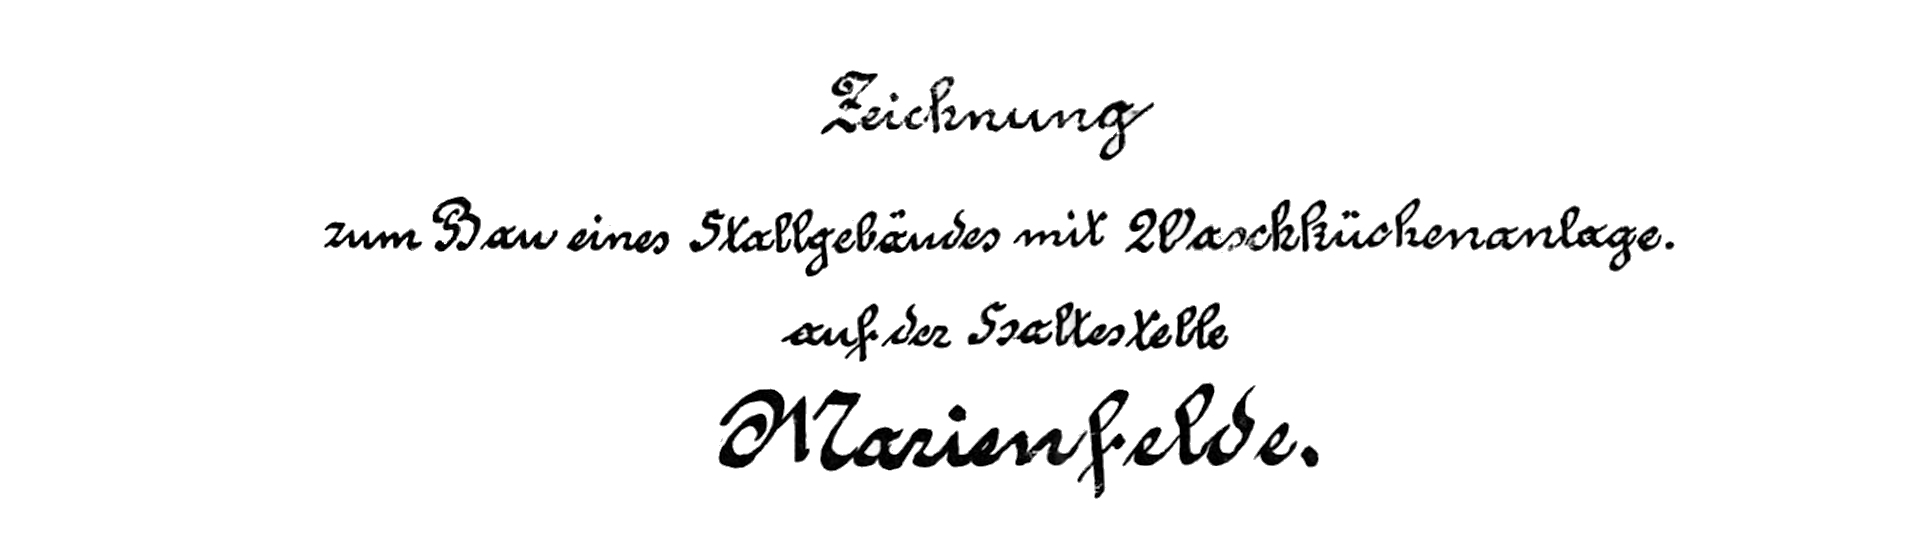 Zeichnung
zum Bau eines Stallgebäudes mit Waschküchenanlage.
auf der Haltestelle
Marienfelde.